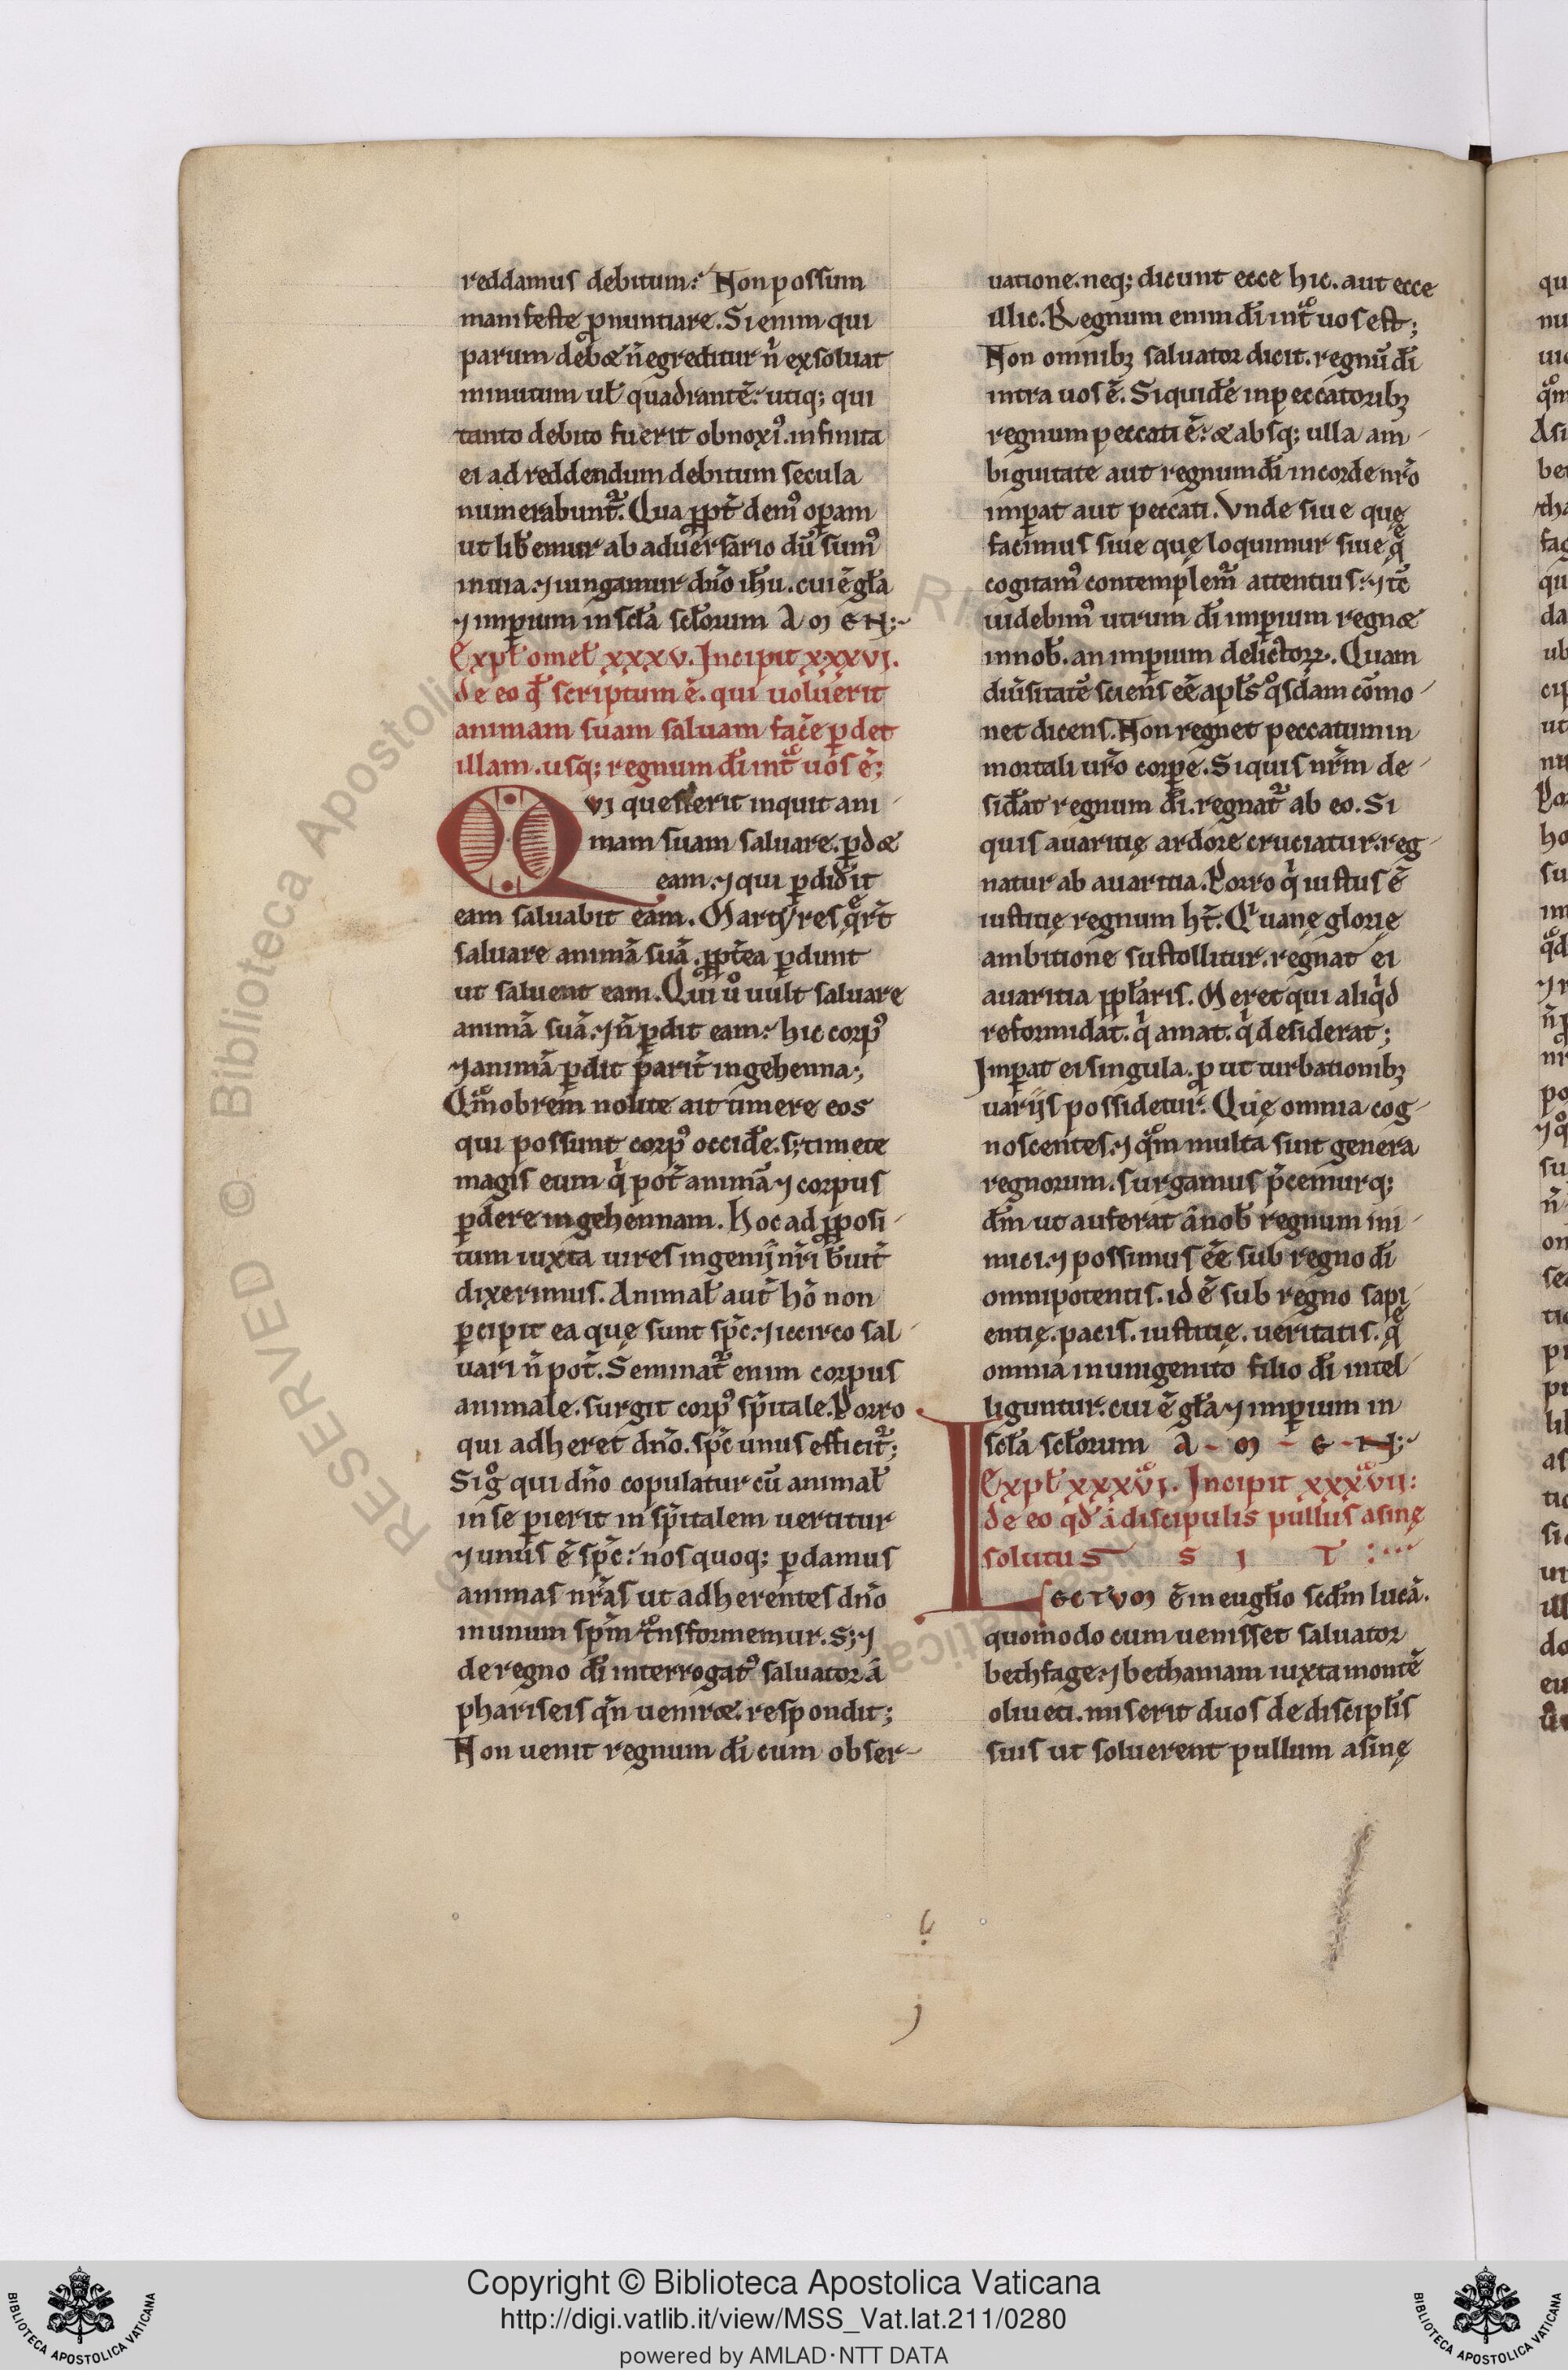 reddamus debitum. Non possum
manifeste ꝓnuntiare. Si enim qui
parum debet n̄ egreditur n̄ exsoluat
minutum uł quadrantē. utiq; qui
tanto debito fuerit obnoxi᷒. infinita
ei ad reddendum debitum secula
numerabunt᷑. Qua ꝓpt̄ dem᷒ oꝑam
ut lib̄emur ab aduersario dū sum᷒
in uia. ⁊ iungamur dn̄o ih̄u. cui ē gła
⁊ imꝑium in scła scłorum AMEN:
Expł omeł xxxv. Incipit xxxvi.
de eo qđ scriptum ē. qui uoluerit
animam suam saluam fac̄e ꝑdet
illam. usq; regnum dī intͣ uos ē;
Qvi quesierit inquit ani
mam suam saluare. ꝑdet
eam. ⁊ qui ꝑdid̄it
eam saluabit eam. Martyres q̄rt̄
saluare animā suā. ꝓpt̄ea ꝑdunt
ut saluent eam. Qui ůo uult saluare
animā suā. ⁊ n̄ ꝑdit eam. hic corp᷒
⁊ animā ꝑdit parit̄ in gehenna;
Qm̊obrem nolite ait timere eos
qui possunt corp᷒ occid̄e. s; timete
magis eum qͥ pot̄ animā ⁊ corpus
ꝑdere in gehennam. Hoc ad ꝓposi
tum iuxta uires ingenij nr̄i b̄uit̄
dixerimus. Animał aut̄ hō non
ꝑcipit ea quę sunt sp̄c. ⁊ iccirco sal
uari n̄ pot̄. Seminat᷑ enim corpus
animale. surgit corp᷒ sp̄itale. Porro
qui adheret dn̄o. sp̄c unus efficit᷑;
Sig̊ qui dn̄o copulatur cū animał
in se ꝑierit in sp̄italem uertitur
⁊ unus ē sp̄c. nos quoq; ꝑdamus
animas nr̄as ut adherentes dn̄o
in unum sp̄m t͛nsformemur. S; ⁊
de regno dī interrogat᷒ saluator ā
phariseis qn̄ ueniret. respondit;
Non uenit regnum dī cum obser-
uatione. neq; dicunt ecce hic. aut ecce
illic. Regnum enim dī intͣ uos est;
Non omnibꝫ saluator dicit. regnū dī
intra uos ē. Siquid̄e in peccatoribꝫ
regnum peccati ē. et absq; ulla am
biguitate aut regnum dī in corde nr̄o
imꝑat aut peccati. Vnde siue quę
facimus siue quę loquimur siue q̄
cogitam᷒ contemplem᷑ attentius. ⁊ tc̄
uidebim᷒ utrum dī imꝑium regnet
in nob̄. an imꝑium delictoꝝ. Quam
diūsitatē sciens eē apłs qͦsdam cōmo
net dicens. Non regnet peccatum in
mortali uro corꝑe. Si quis nr̄m de
sid̄at regnum dī. regnat᷑ ab eo. Si
quis auaritię ardore cruciatur. reg
natur ab auaritia. Porro qͥ iustus ē
iustitię regnum ht̄. Qͥ uanę glorię
ambitione sustollitur. regnat ei
auaritia ppłaris. Meret qui aliqͥd
reformidat. qͥ amat. qͥ desiderat;
Imꝑat ei singula. ꝓ ut turbationibꝫ
uarijs possidetur. Quę omnia cog
noscentes. ⁊ qm̊ multa sint genera
regnorum. surgamus p̄cemurq;
dm̄ ut auferat ā nob̄ regnum ini
mici. ⁊ possimus eē sub regno dī
omnipotentis. id ē sub regno sapi
entię. pacis. iustitię. ueritatis. q̄
omnia in unigenito filio dī intel
liguntur. cui ē gła ⁊ imꝑium in
scła scłorum A-M-E-N:
Expł xxxvi. Incipit xxxvii:
de eo qđ ā discipulis pullus asinę
solutus SIT:
LECTVM ē in eugłio scd̄m lucā.
quomodo cum uenisset saluator
bethfage. ⁊ bethaniam iuxta montē
oliueti. miserit duos de discipłis
suis ut soluerent pullum asinę
Copyright © Biblioteca Apostolica Vaticana
http://digi.vatlib.it/view/MSS_Vat.lat.211/0280
powered by AMLAD·NTT DATA